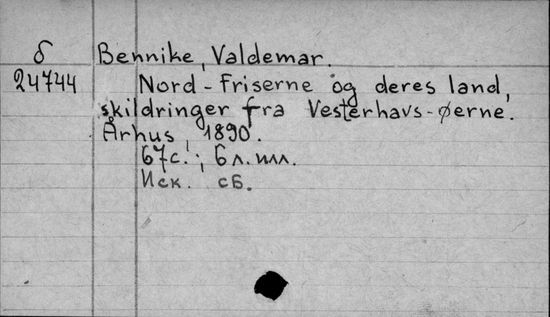 б Bennike, Valdemar.
24744 Nord-Friserne og deres land,
skildringer fra Vesterhavs-øerne.
Århus, 1890.
67с.; 6 л. илл.
Иск. сб.